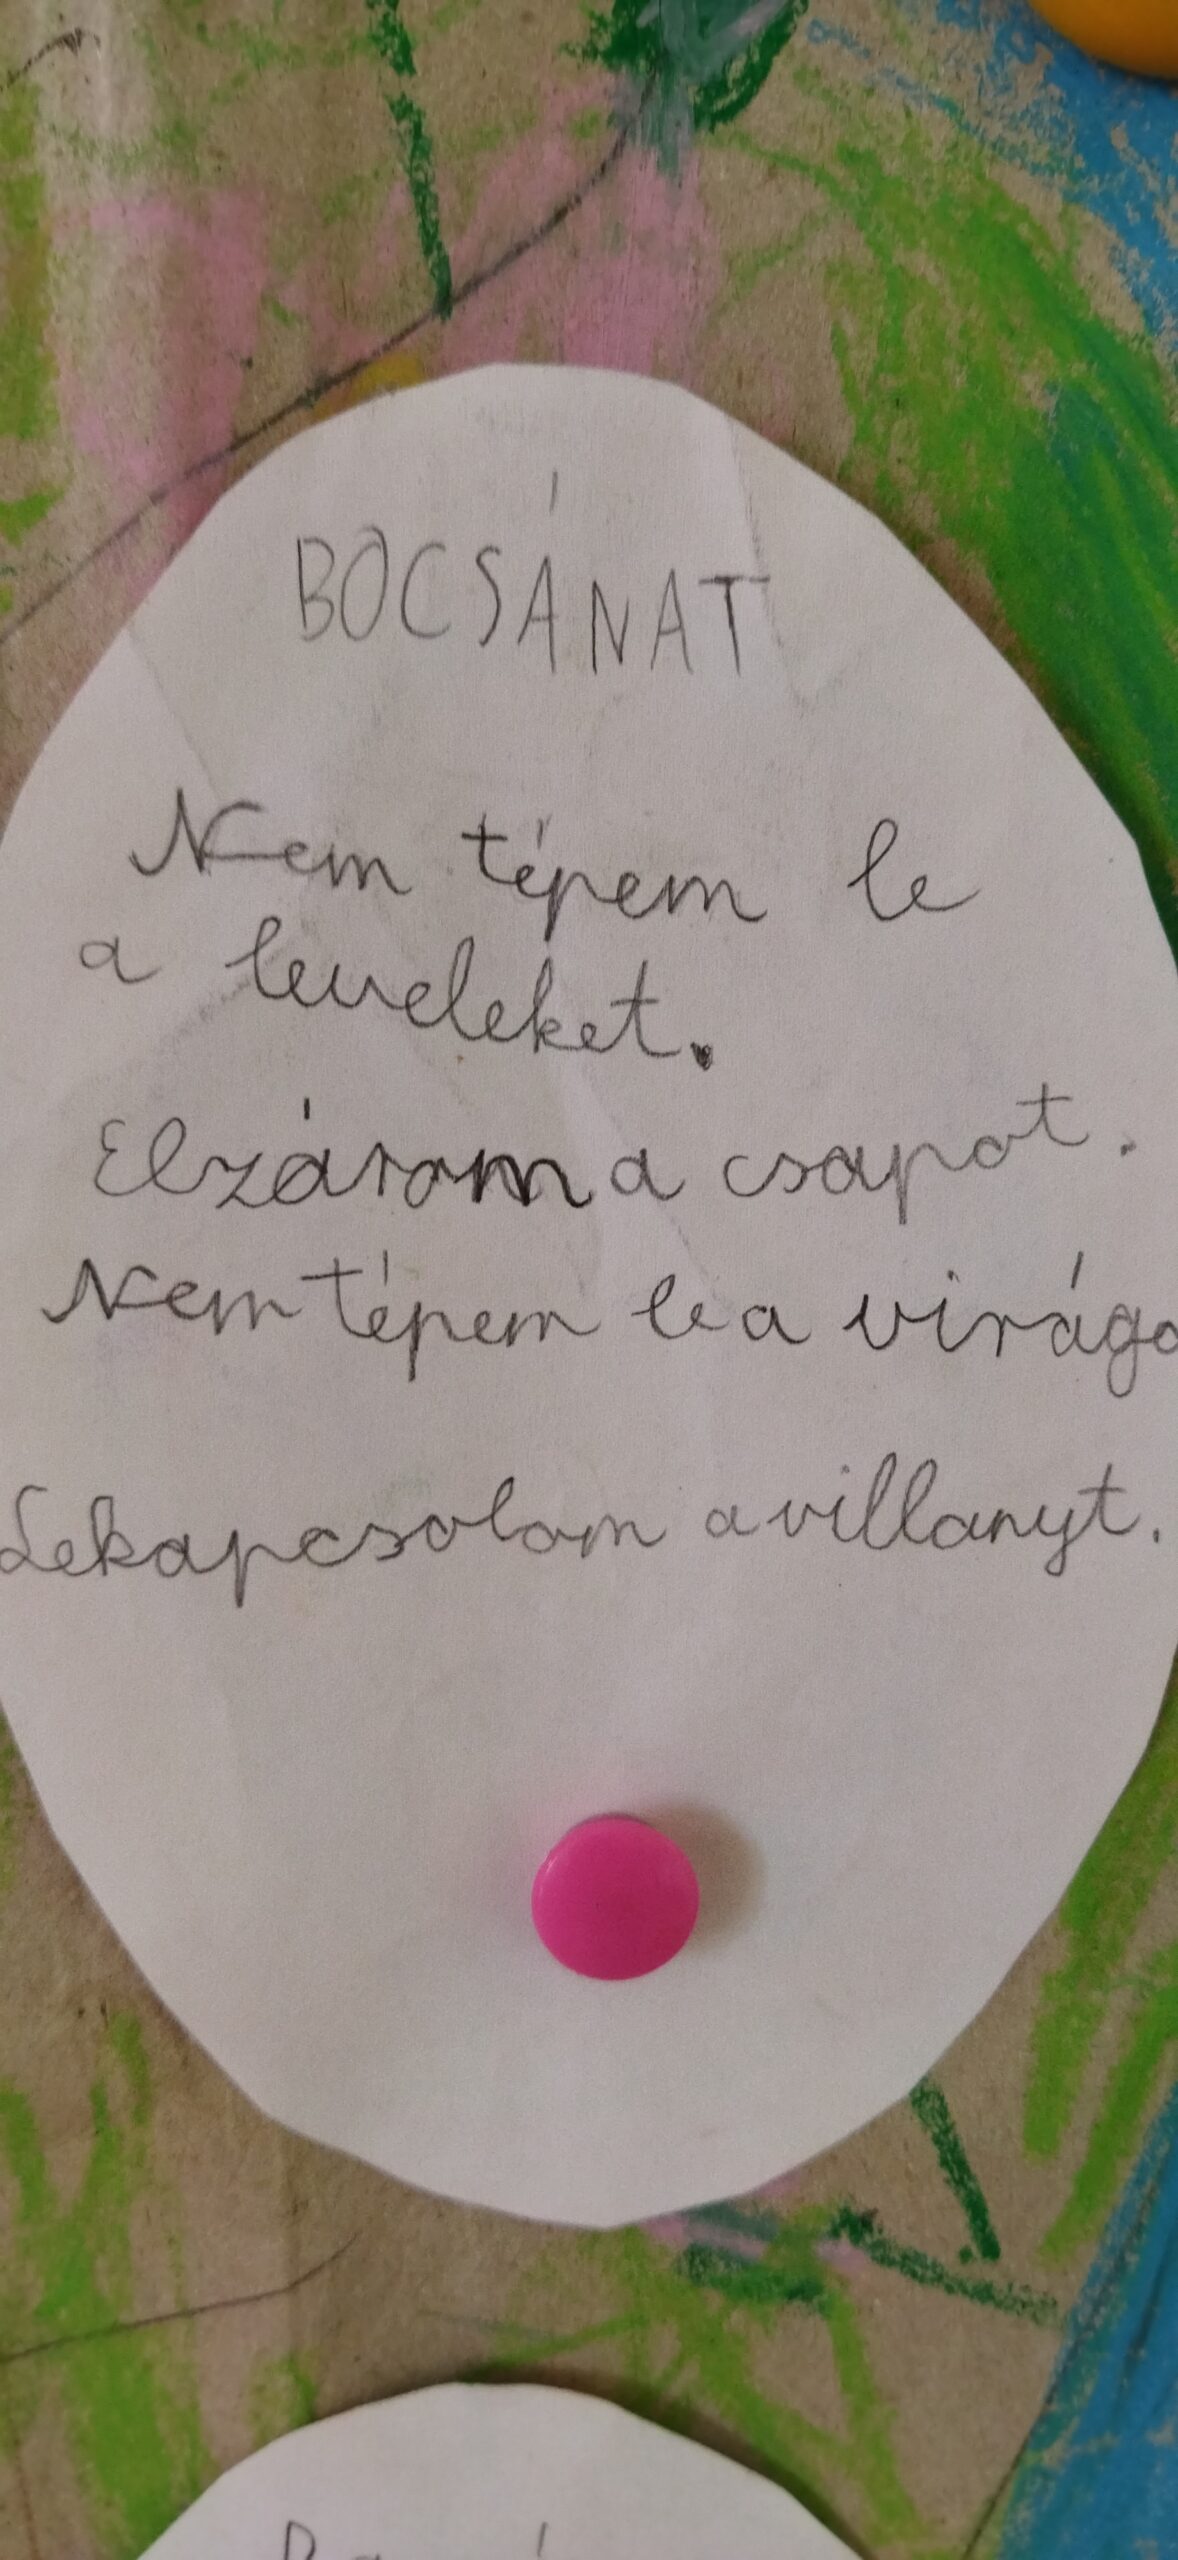 BOCSÁNAT
Nem tépem le
a leveleket.
Elzárom a csapot.
Nem tépem le a virágo
Lekapcsolom a villanyt.